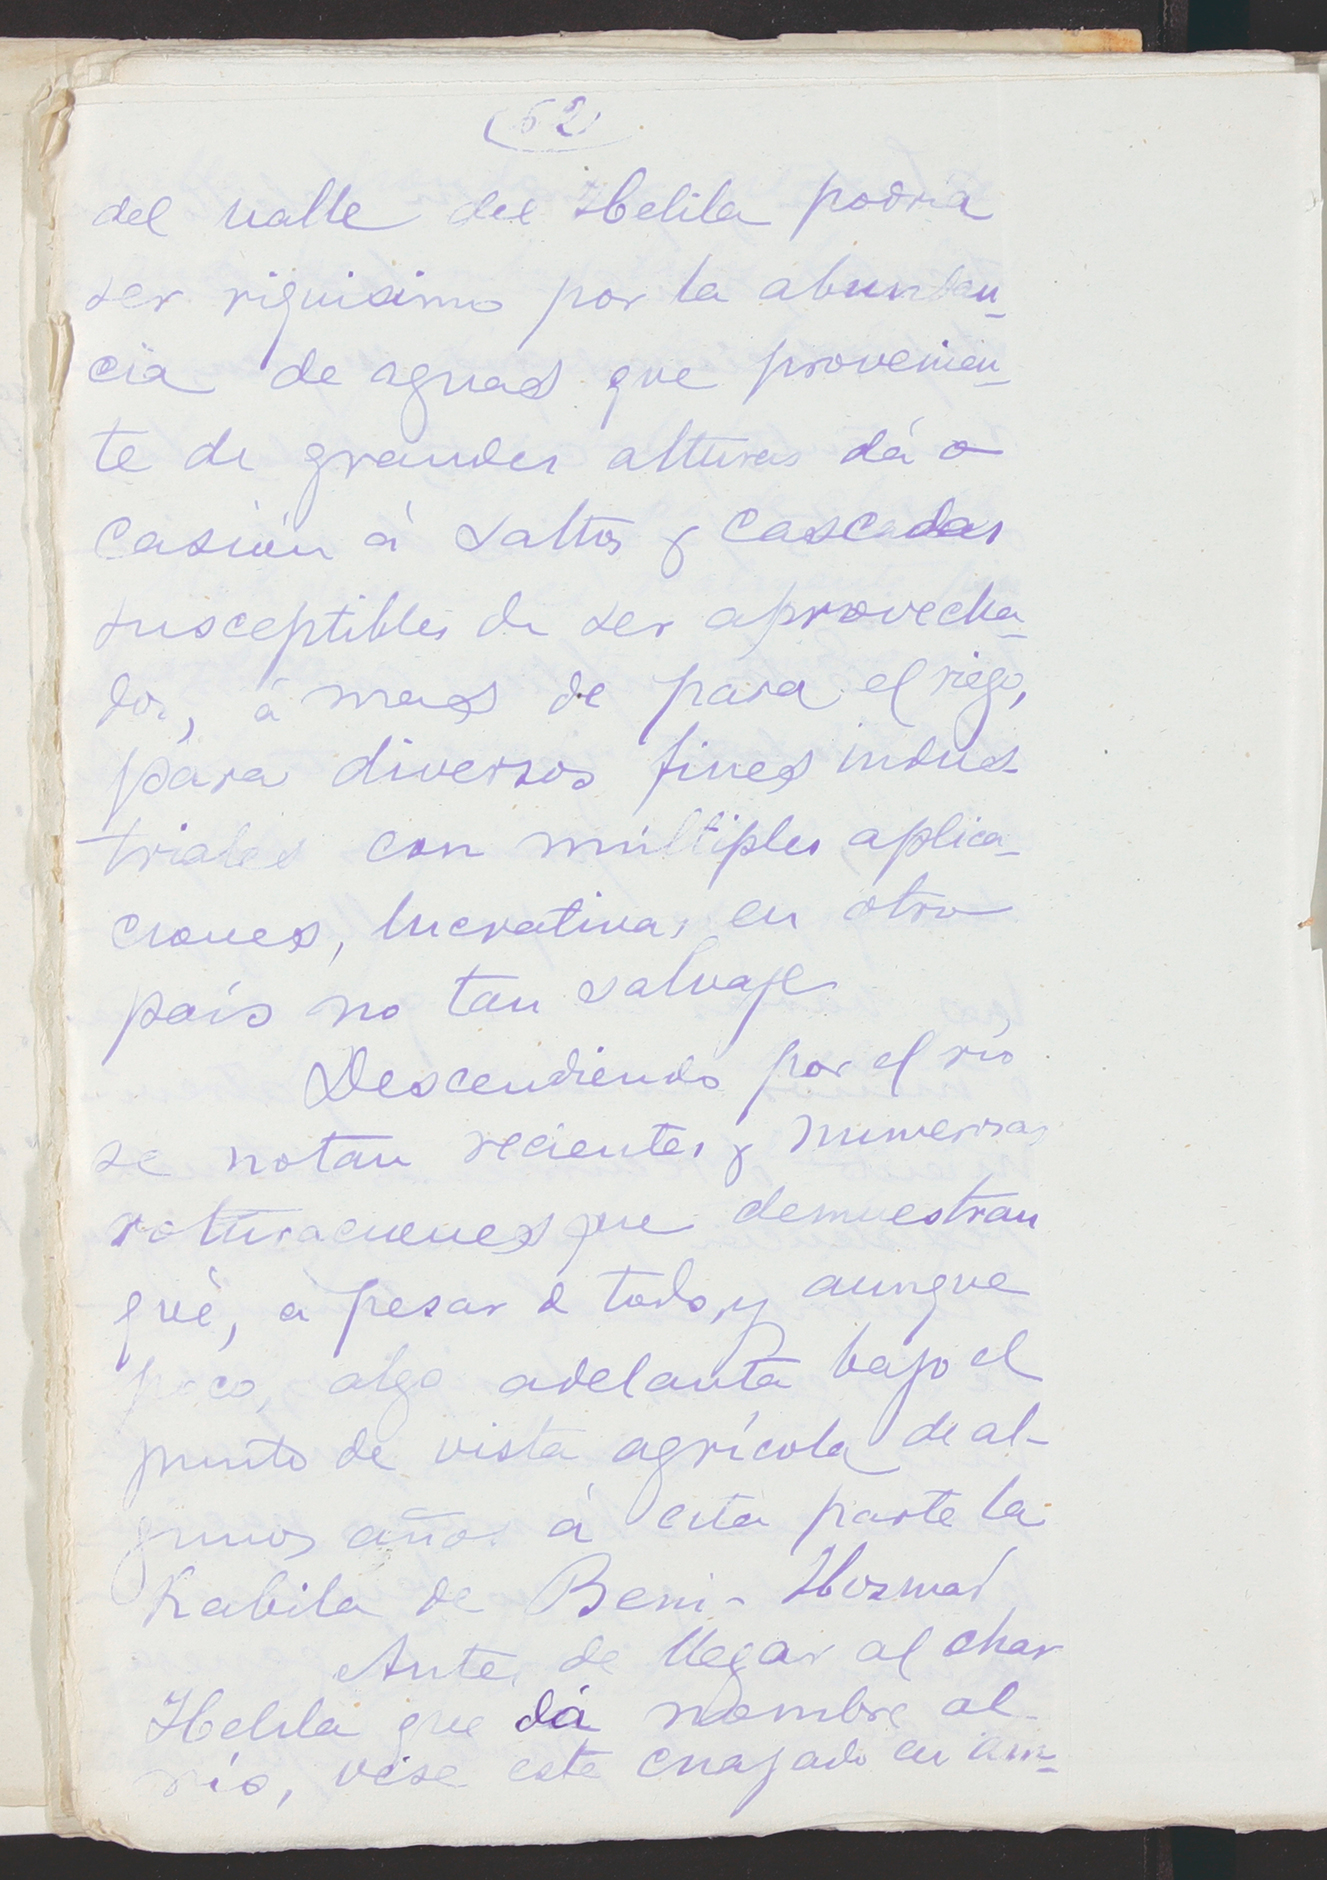 (52)
del valle del Helila podria
ser riquisimo por la abundan_
cia de aguas que provenien_
te de grandes alturas dá o
casión á saltos y cascadas
susceptibles de ser aprovecha_
dos, á mas de para el riego,
para diversos fines indus_
triales con múltiples aplica_
ciones, lucrativas en otro
país no tan salvaje
Descendiendo por el río
se notan recientes y numerosas
roturaciones que demuestran
qué, a pesar d todo, y aunque
poco, algo adelanta bajo el
punto de vista agrícola de al-
gunos años á esta parte la
Kabila de Beni- Hozmar
Antes de llegar al char
Helila que dá nombre al
río, vése este encajado en am_